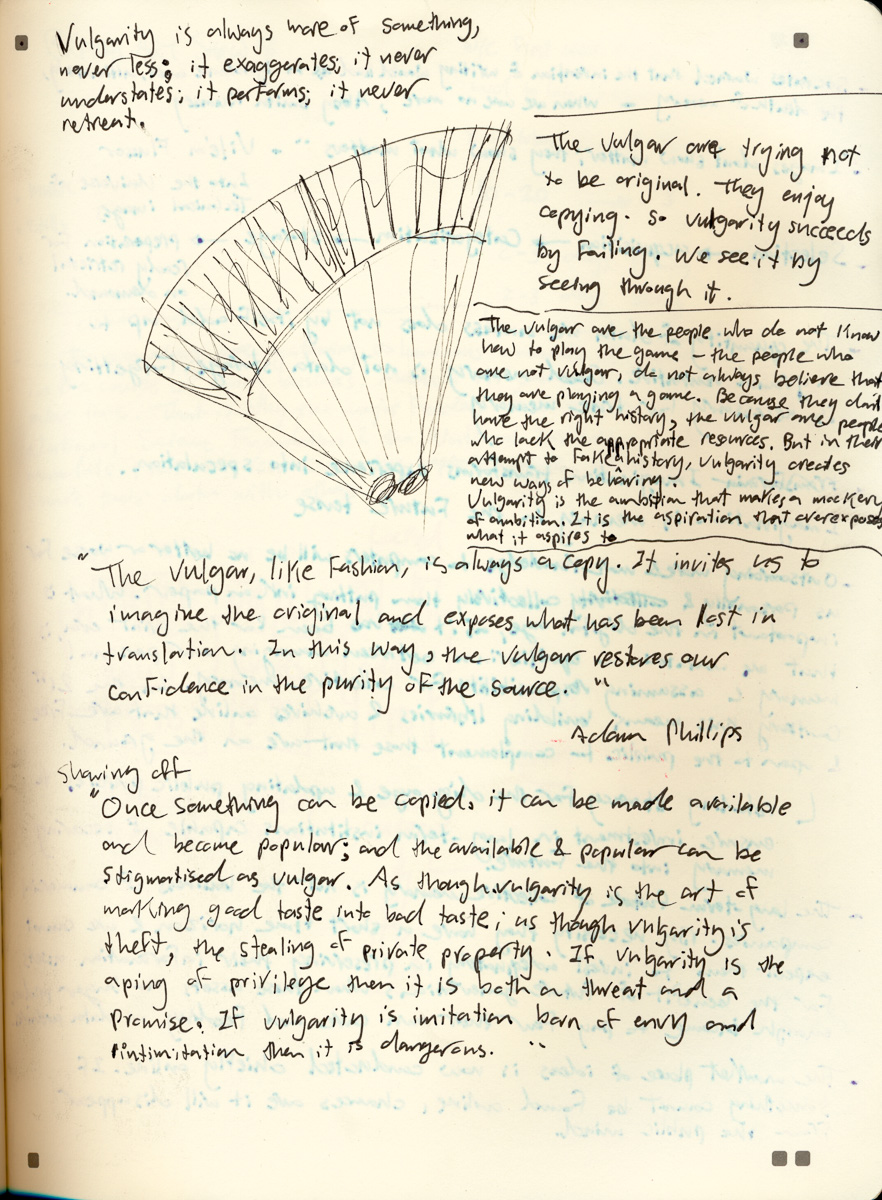 Vulgarity is always more of something,
never less; it exaggerates; it never
understates; it performs; it never
retreat.
The vulgar are trying not
to be original. They enjoy
copying. So vulgarity succeeds
by failing. We see it by
seeing through it.
The vulgar are the people who do not know
how to play the game – the people who
are not vulgar, do not always believe that
they are playing a game. Because they don't
have the right history, the vulgar are people
who lack the appropriate resources. But in their
attempt to fake a history, vulgarity creates
new ways of behaving.
Vulgarity is the ambition that makes a mockery
of ambition. It is the aspiration that overexposes
what it aspires to
"The vulgar, like fashion, is always a copy. It invites us to
imagine the original and exposes what has been lost in
translation. In this way, the vulgar restores our
confidence in the purity of the source."
Adam Phillips
showing off
"Once something can be copied, it can be made available
and become popular; and the available & popular can be
stigmatised as vulgar. As though vulgarity is the art of
making good taste into bad taste; as though vulgarity is
theft, the stealing of private property. If vulgarity is the
aping of privilege then it is both a threat and a
promise. If vulgarity is imitation born of envy and
intimitation then it is dangerous."